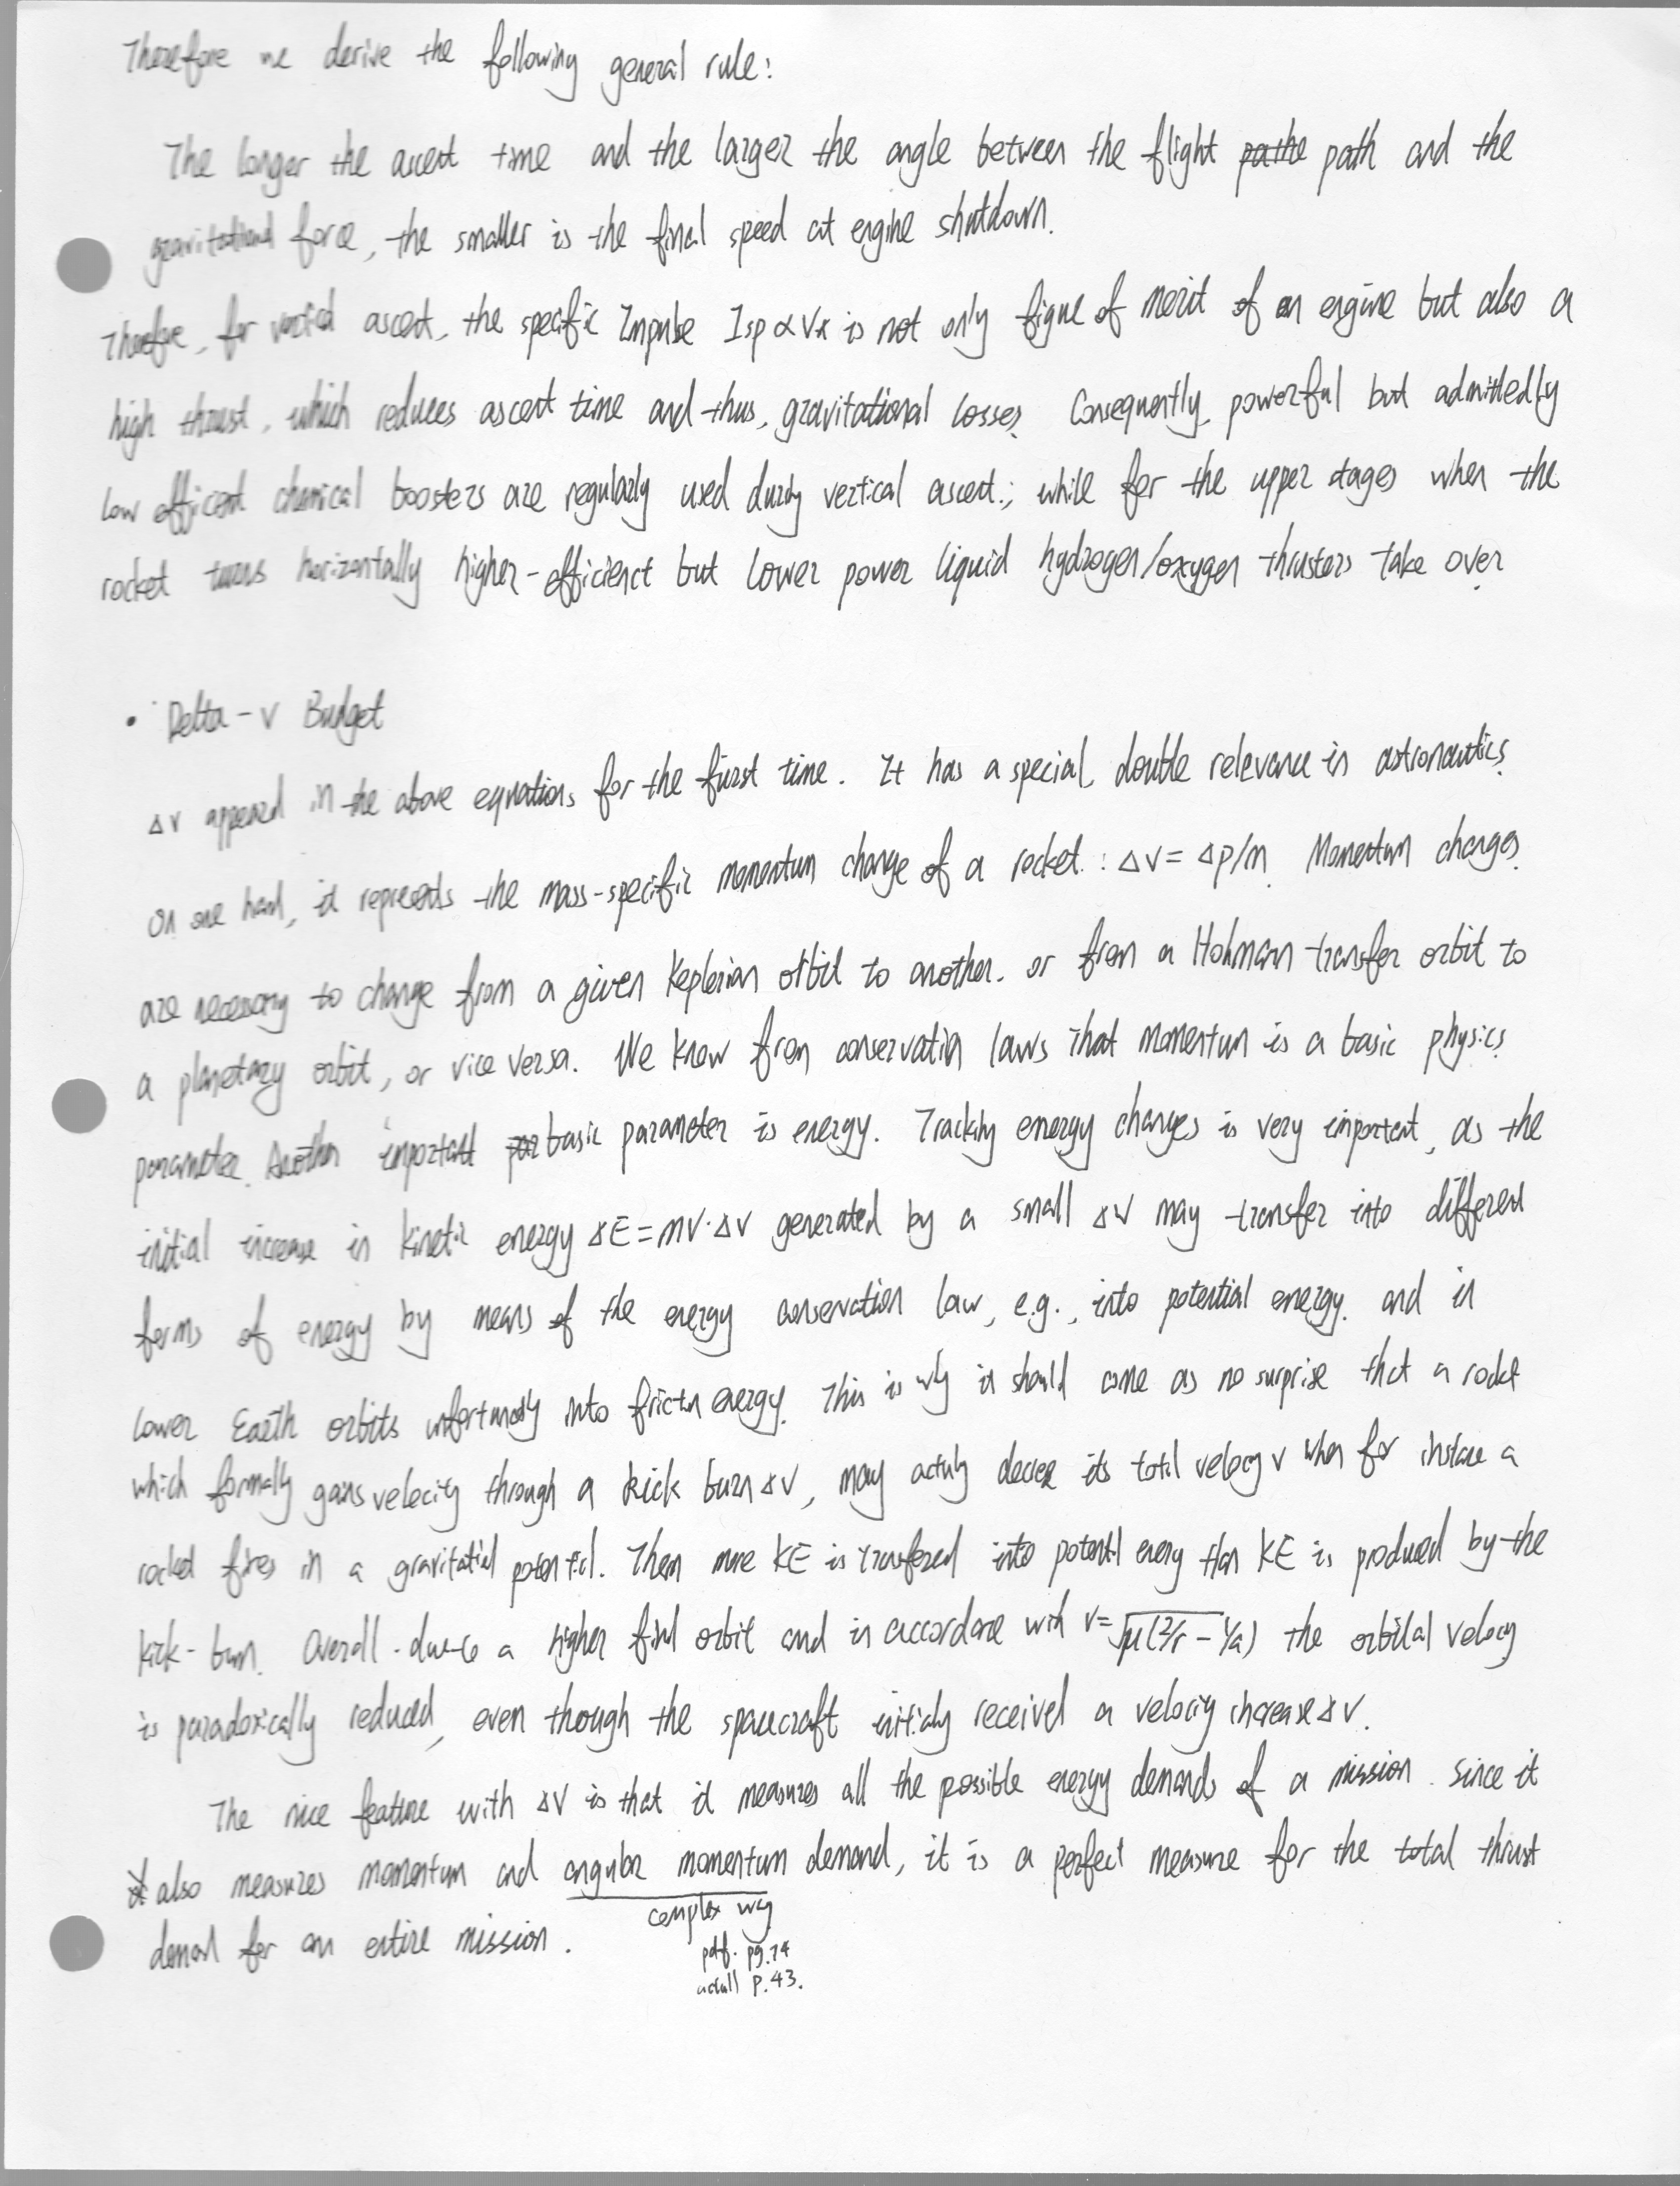 Therefore we derive the following general rule:
The longer the ascent time and the larger the angle between the flight pathe path and the
gravitational force, the smaller is the final speed at engine shutdown.
Therefore, for vertical ascent, the specific Impulse Isp ∝ V* is not only figure of merit of an engine but also a
high thrust, which reduces ascent time and thus, gravitational losses. Consequently, powerful but admittedly
low efficient chemical boosters are regularly used during vertical ascent.; while for the upper stages when the
rocket turns horizontally higher-efficienct but lower power liquid hydrogen/oxygen thrusters take over.
• Delta-v Budget
Δv appeared in the above equations for the first time. It has a special, double relevance in astronautics.
On one hand, it represents the mass-specific momentum change of a rocket.: Δv = Δp/m. Momentum changes
are necessary to change from a given Keplerian orbit to another. or from a Hohmann transfer orbit to
a planetary orbit, or vice versa. We know from conservation laws that momentum is a basic physics
parameter. Another important par basic parameter is energy. Tracking energy changes is very important, as the
initial increase in kinetic energy ΔE = mv·Δv generated by a small Δv may transfer into different
forms of energy by means of the energy conservation law, e.g., into potential energy. and in
lower Earth orbits unfortunately into friction energy. This is why it should come as no surprise that a rocket
which formally gains velocity through a kick burn Δv, may actually decrease its total velocity v when for instance a
rocket fires in a gravitational potential. Then more KE is transfered into potential energy than KE is produced by the
kick-burn. Overall - due to a higher final orbit and in accordance with v=√μ(2/r - 1/a) the orbital velocity
is paradoxically reduced, even though the spacecraft initially received a velocity increase Δv.
The nice feature with Δv is that it measures all the possible energy demands of a mission. Since it
it also measures momentum and angular momentum demand, it is a perfect measure for the total thrust
demand for an entire mission.
complex way
pdf. pg.74
actuall p.43.